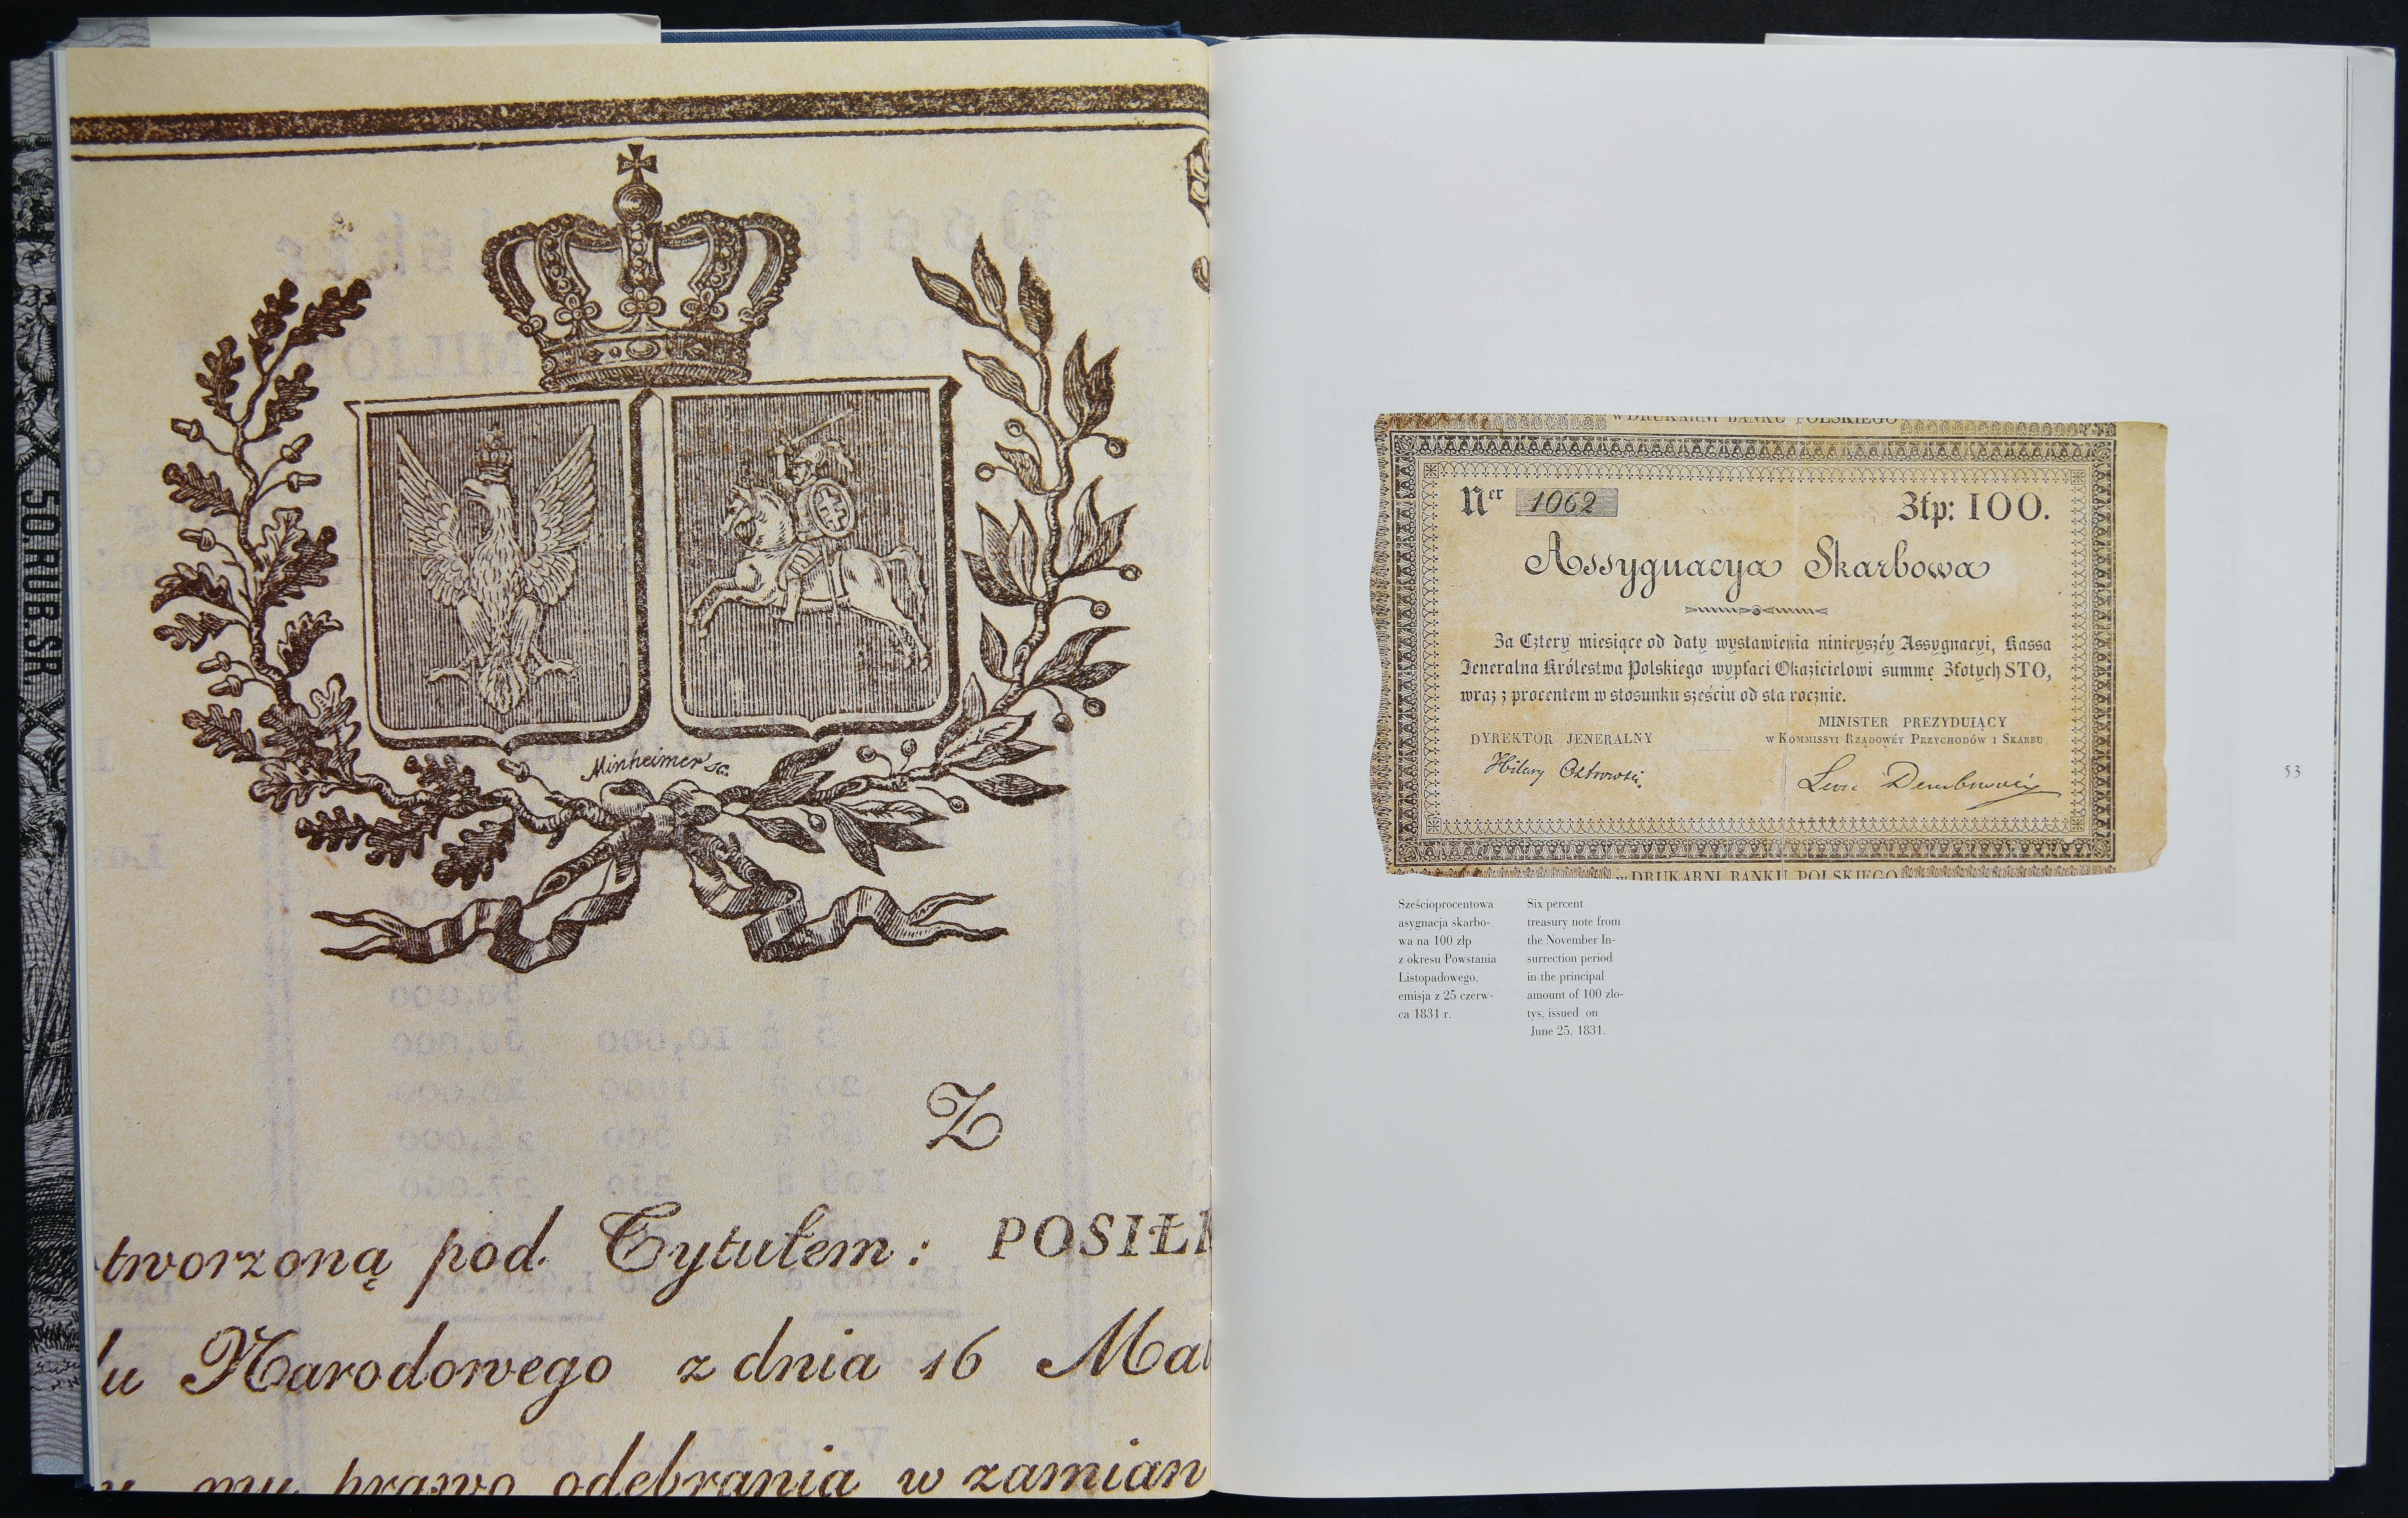 50.RUB.SR.
Minheimer sc.
Z
tworzoną pod. Tytułem: POSIŁK
u Narodowego z dnia 16 Ma
mu prawo odebrania w zamian
w DRUKARNI BANKU POLSKIEGO
Ner 1062 Złp: 100.
Assygnacya Skarbowa
Za Cztery miesiące od daty wystawienia ninieyszéy Assygnacyi, Kassa
Jeneralna Królestwa Polskiego wypłaci Okazicielowi summę Złotych STO,
wraz z procentem w stosunku sześciu od sta rocznie.
MINISTER PREZYDUIĄCY
DYREKTOR JENERALNY w KOMMISSYI RZĄDOWÉY PRZYCHODÓW I SKARBU
Hilary Ostrowski
Leon Dembowski
w DRUKARNI BANKU POLSKIEGO
53
Sześcioprocentowa
asygnacja skarbo-
wa na 100 złp
z okresu Powstania
Listopadowego,
emisja z 25 czerw-
ca 1831 r.
Six percent
treasury note from
the November In-
surrection period
in the principal
amount of 100 zlo-
tys, issued on
June 25, 1831.